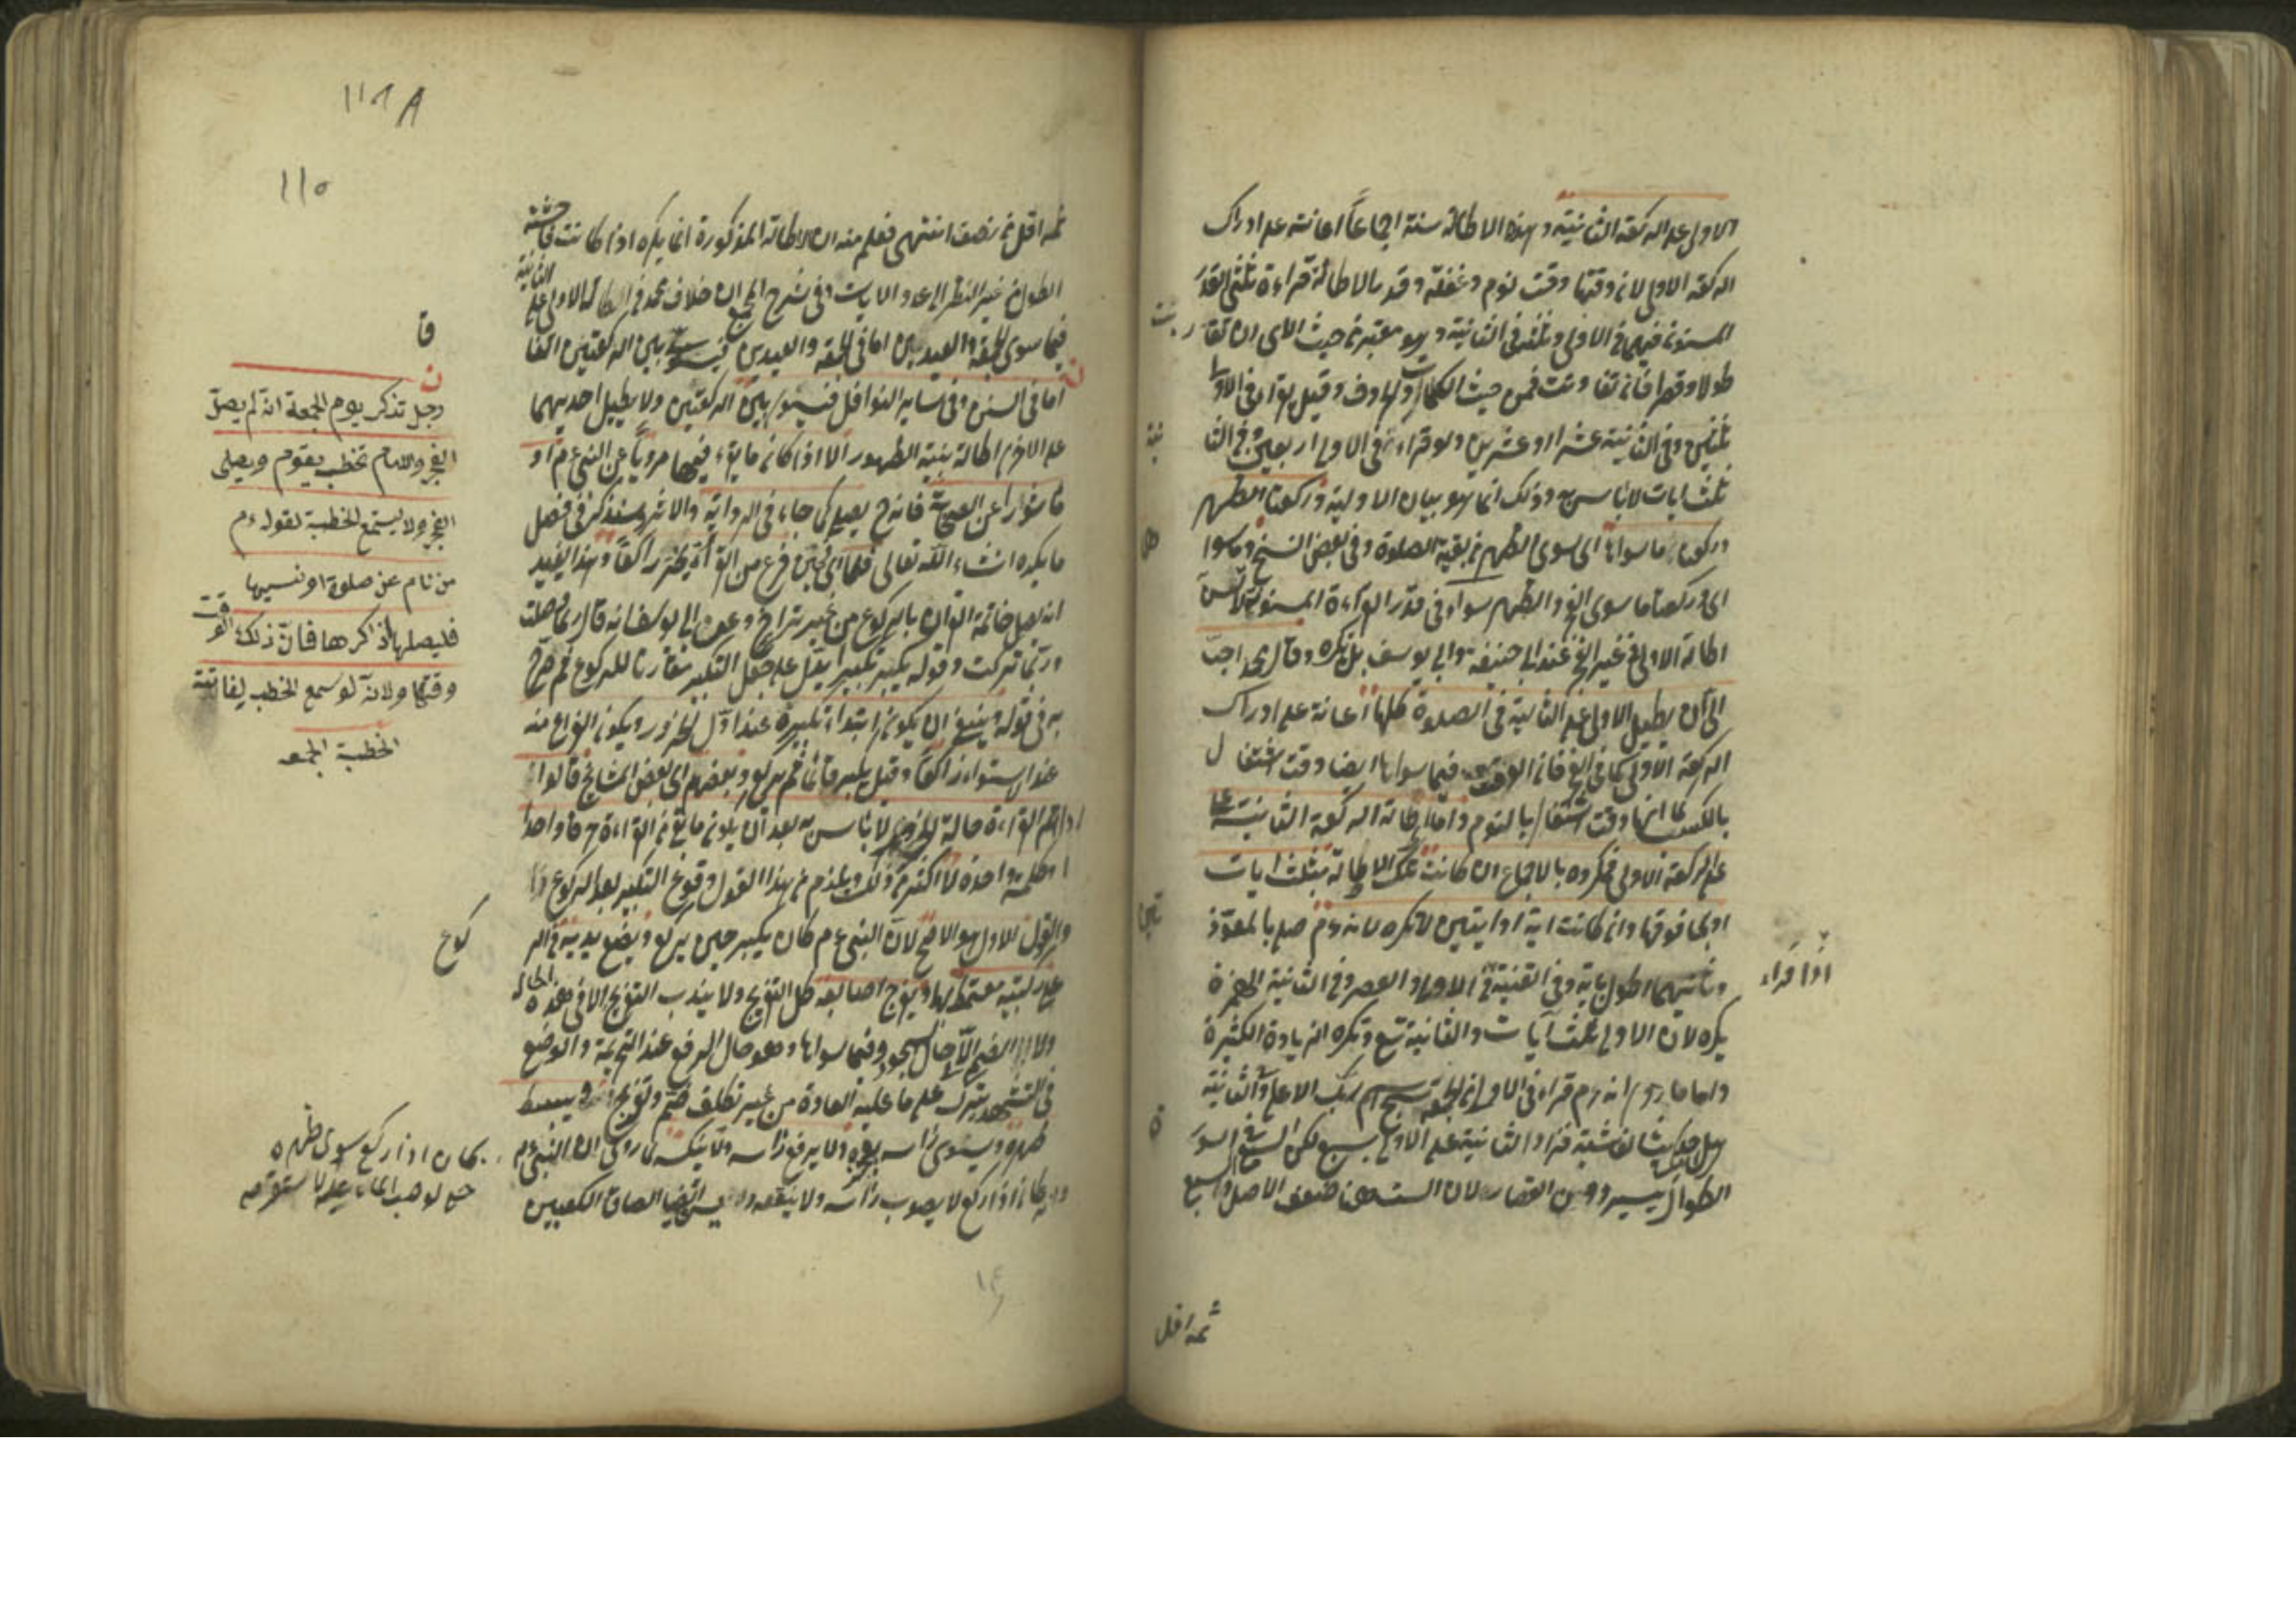 الاولى على الركعة الثانية وهذه الاطالة سنة اجماعاً اعانة على ادراك
الركعة الاولى لان وقتها وقت نوم وغفلة وقدر الاطالة قراءة ثلثى القدر
المسنون فيهما فى الاولى وثلثه فى الثانية وهو معتبر من حيث الاى ان تقاربت
طولا وقصرا فان تفاوتت فمن حيث الكلمات والحروف وقيل يقرأ فى الاولى
ثلثين وفى الثانية عشرا او عشرين ولو قراء فى الاولى اربعين وفى الثانية
ثلث ايات لا باس به وذلك انما هو بيان الاولوية وركعتا الظهر
وركعتا ما سواها اى سوى الظهر من بقية الصلوة وفى بعض النسخ وما سواهما
اى وركعتا ما سوى الفجر والظهر سواء فى قدر القراءة المسنونة
اطالة الاولى فى غير الفجر عند ابى حنيفة وابى يوسف بل تكره وقال محمد احب
الى ان يطيل الاولى على الثانية فى الصلوة كلها اعانة على ادراك
الركعة الاولى كما فى الفجر فان الوقت فيما سواها ايضا وقت اشتغال
بالكسب كما انها وقت اشتغال بالنوم واما اطالة الركعة الثانية
على الركعة الاولى فمكروه بالاجماع ان كانت تلك الاطالة بثلث ايات
او بما فوقها وان كانت اية او ايتين لا تكره لانه ءم صلى بالمعوذتين
وثانيتهما اطول باية وفى القنية اذا قراء فى الاولى والعصر وفى الثانية الهمزة
يكره لان الاولى ثلث آيات والثانية تسع وتكره الزيادة الكثيرة
واما ما روى انه ءم قراء فى الاولى من الجمعة سبح اسم ربك الاعلى وفى الثانية
هل اتيك حديث الغاشية فزاد الثانية على الاولى بسبع لكن السبع فى السور
الطوال يسير دون القصار لان الست هنا ضعف الاصل والسبع
ثمه اقل
ثمه اقل من نصف انتهى فعلم منه ان الاطالة المذكورة انما يكره اذا كانت فاحشة
الطول من غير النظر الى عدد الايات وفى شرح المجمع ان خلاف محمد فى اطالة الاولى على الثانية
فيما سوى الجمعة والعيدين اما فى الجمعة والعيدين فيسوى بين الركعتين اتفاقا
اما فى السنن وفى سائر النوافل فيسوى بين الركعتين ولا يطيل احديهما
على الاخرى اطالة بنية الظهور الا اذا كان ما يقراء فيهما مرويا عن النبى ءم او
ماثورا عن الصحابة فانه ح يصلى كما جاء فى الرواية والاثر وسنذكر فى فصل
ما يكره ان شاء الله تعالى فلما اى فحين فرغ من القراءة يخر راكعا وهذا يفيد
انه يصل خاتمة القران بالركوع من غير تراخ وعن ابى يوسف انه قال ربما وصلت
وربما تركت وقوله يكبر تكبيرا يدل على جعل التكبير مقارنا للركوع ثم صرح
به فى قوله وينبغى ان يكون ابتداء تكبيره عند اول الخرور ويكون الفراغ منه
عند الاستواء راكعا وقيل يكبر قائما ثم يركع وبعضهم اى بعض المشايخ قالوا
اذا اتم القراءة حالة الخرور لا باس به بعد ان يكون ما بقى من القراءة حرفا واحدا
او كلمة واحدة لا اكثر من ذلك ويلزم من هذا القول وقوع التكبير بعد الركوع
والقول الاول هو الاصح لان النبى ءم كان يكبر حين يركع ويضع يديه فى الركوع
على ركبتيه معتمدا بها ويفرج اصابعه كل التفريج ولا يندب التفريج الا فى هذه الحالة
ولا الى الضم الا حال السجود وفيما سواها وهو حال الرفع عند التحريمة والوضع
فى التشهد يترك على ما عليه العادة من غير تكلف ضم وتفريج ويبسط
ظهره ويسوى راسه بعجزه ولا يرفع راسه ولا ينكسه لما روى ان النبى ءم
كان اذا ركع لا يصوب راسه ولا يقنعه ويسن ايضا الصاق الكعبين
١١٥
قا
رجل تذكر يوم الجمعة انه لم يصل
الفجر والامام يخطب يقوم ويصلى
الفجر ولا يستمع الخطبة لقوله ءم
من نام عن صلوة او نسيها
فليصلها اذا ذكرها فان ذلك
وقتها ولانه لو سمع الخطب لفاتته
الخطبة الجمعه
كان اذا ركع سوى ظهره
حتى لو صب الماء عليه لاستقر